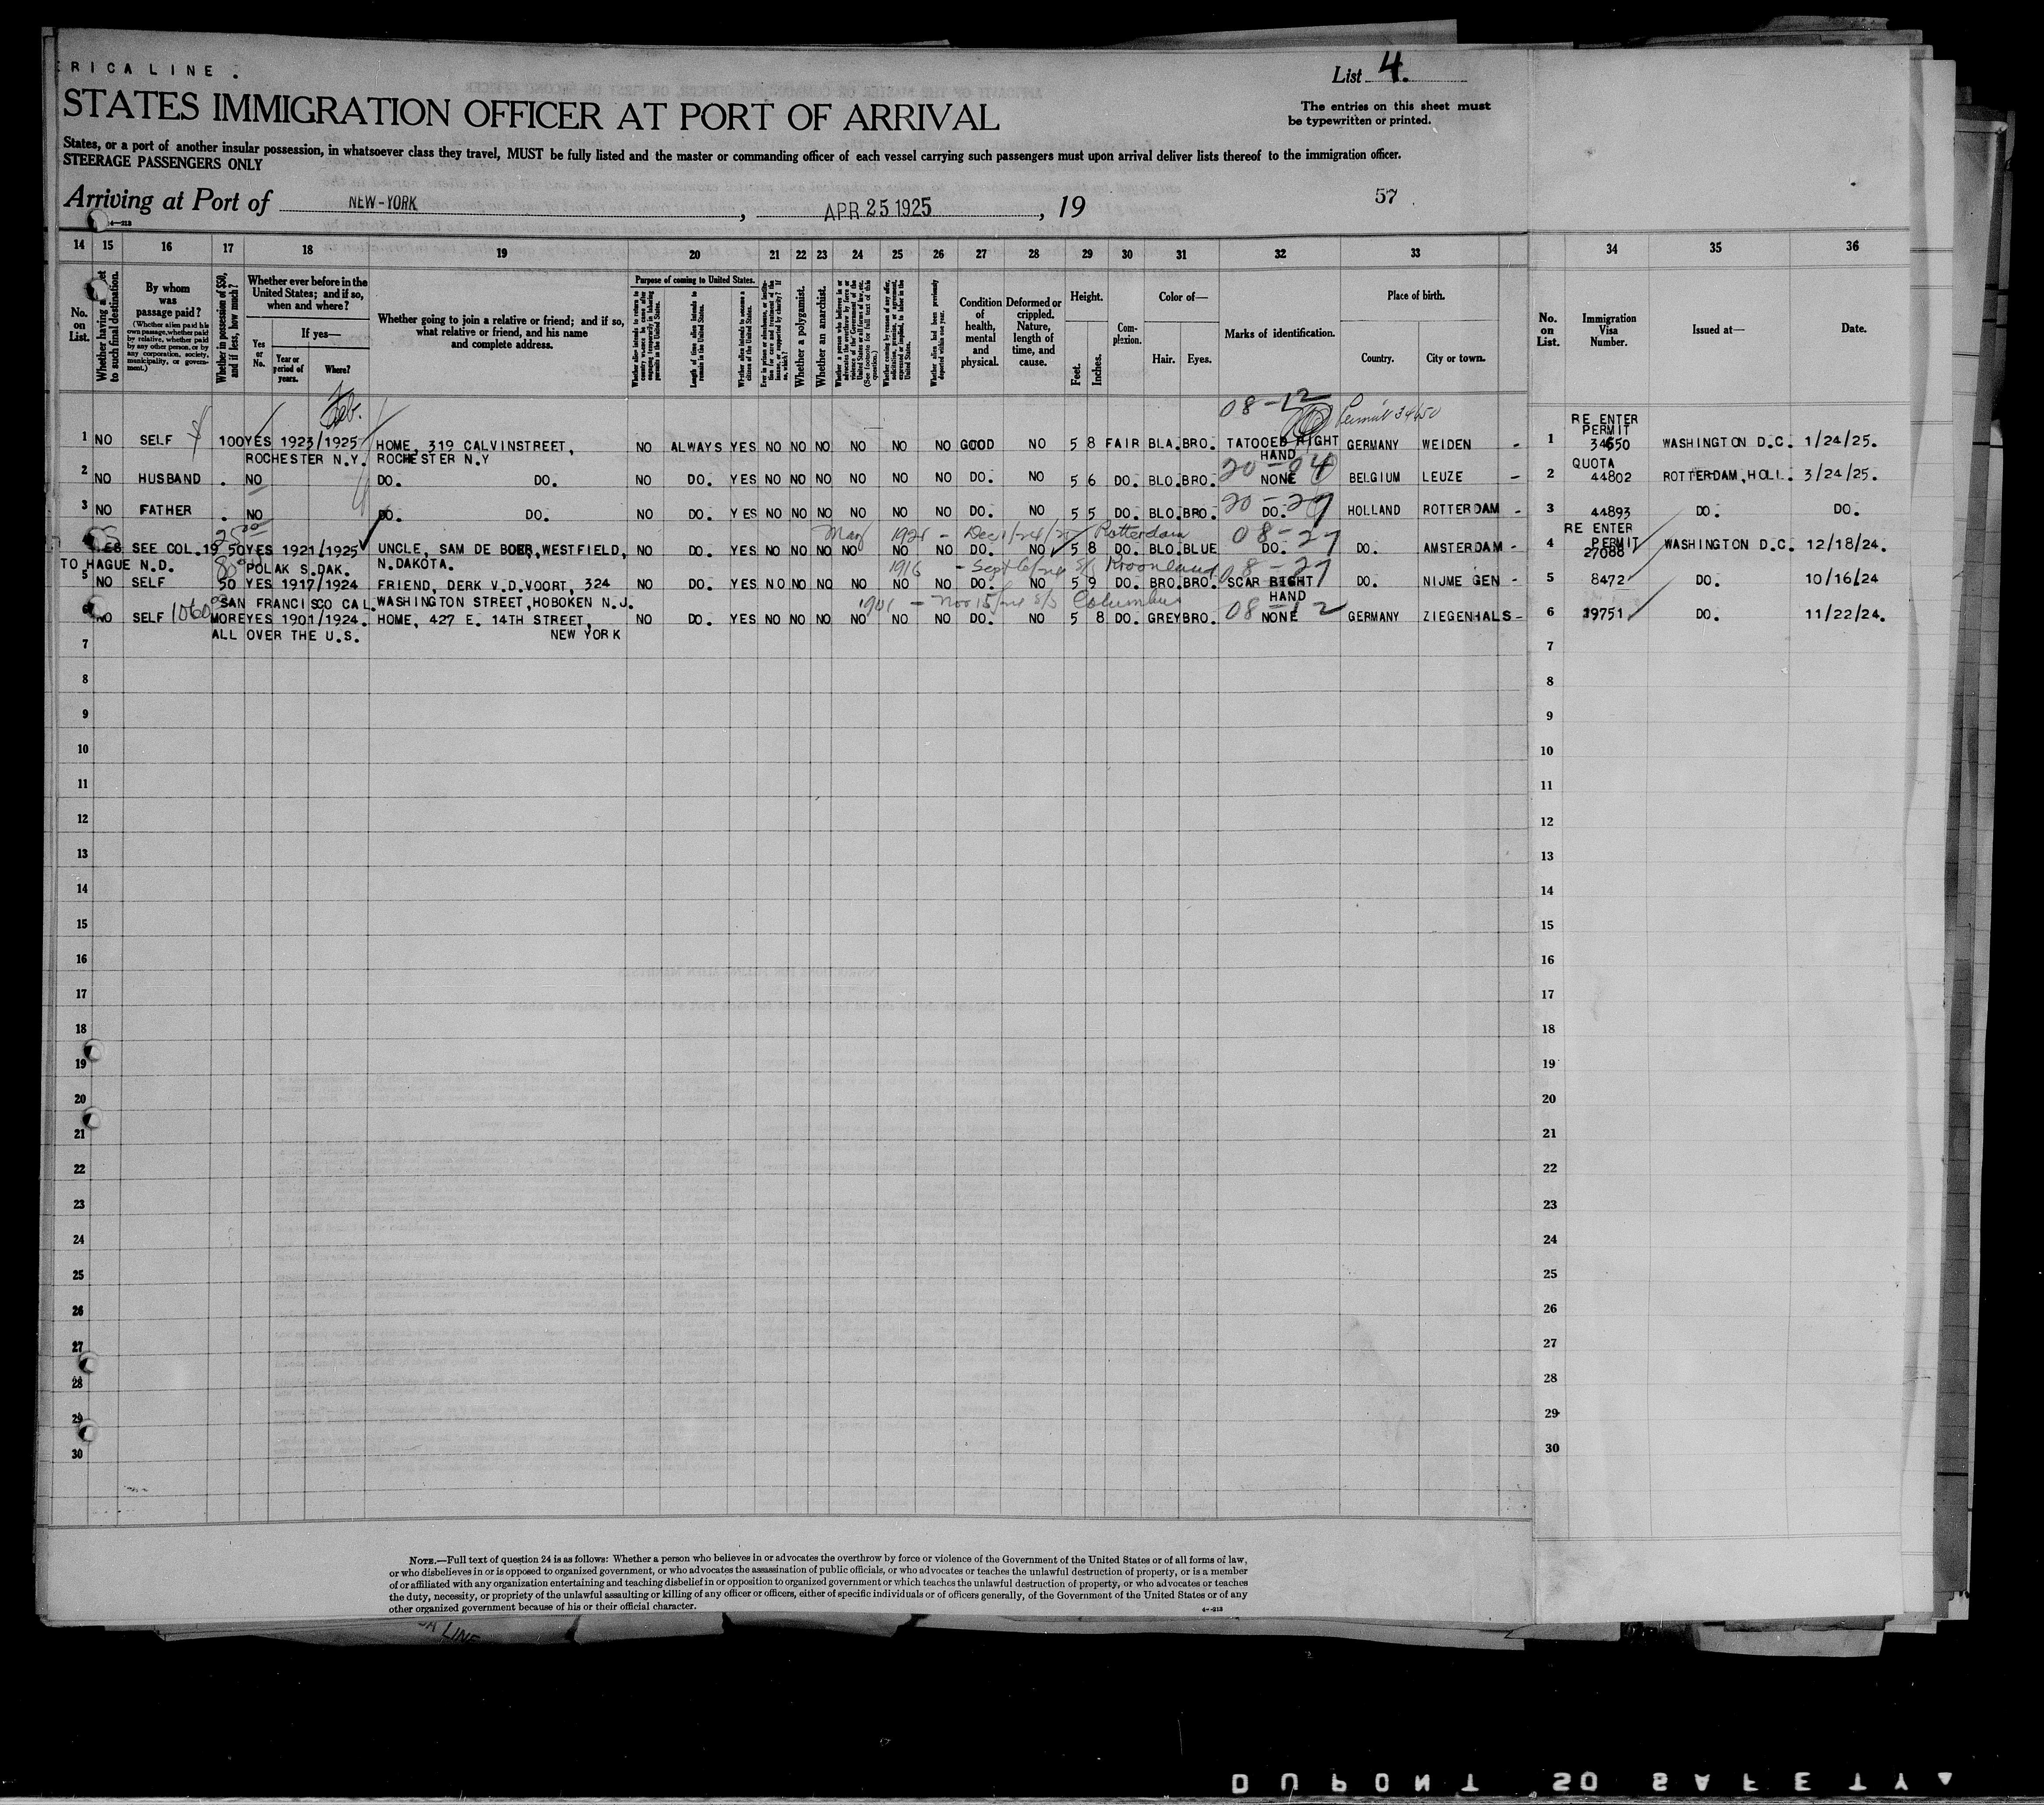 ERICA LINE.
List 4.
STATES IMMIGRATION OFFICER AT PORT OF ARRIVAL
The entries on this sheet must
be typewritten or printed.
States, or a port of another insular possession, in whatsoever class they travel, MUST be fully listed and the master or commanding officer of each vessel carrying such passengers must upon arrival deliver lists thereof to the immigration officer.
STEERAGE PASSENGERS ONLY
Arriving at Port of NEW-YORK, APR 25 1925, 19
57
14 15 16 17 18 19 20 21 22 23 24 25 26 27 28 29 30 31 32 33 34 35 36
No. on List.
By whom was passage paid?
(Whether alien paid his own passage, whether paid by relative, whether paid by any other person, or by any corporation, society, municipality, or government.)
Whether in possession of $50, and if less, how much?
Whether ever before in the United States; and if so, when and where?
If yes—
Yes or No.
Year or period of years.
Where?
Whether going to join a relative or friend; and if so, what relative or friend, and his name and complete address.
Purpose of coming to United States.
Length of time alien intends to remain in the United States.
Whether alien intends to become a citizen of the United States.
Whether a polygamist.
Whether an anarchist.
Whether alien had been previously deported within one year.
Condition of health, mental and physical.
Deformed or crippled. Nature, length of time, and cause.
Height.
Feet.
Inches.
Complexion.
Color of—
Hair. Eyes.
Marks of identification.
Place of birth.
Country. City or town.
No. on List.
Immigration Visa Number.
Issued at—
Date.
Feb.
08-12
Permit 34650
RE ENTER
PERMIT
1 NO SELF 100 YES 1923/1925 HOME, 319 CALVINSTREET, NO ALWAYS YES NO NO NO NO NO NO GOOD NO 5 8 FAIR BLA. BRO. TATOOED RIGHT GERMANY WEIDEN - 1 34650 WASHINGTON D.C. 1/24/25.
ROCHESTER N.Y. ROCHESTER N.Y HAND
20-04 QUOTA
2 NO HUSBAND . NO DO. DO. NO DO. YES NO NO NO NO NO NO DO. NO 5 6 DO. BLO. BRO. NONE BELGIUM LEUZE - 2 44802 ROTTERDAM, HOLL. 3/24/25.
20-27
3 NO FATHER . NO DO. DO. NO DO. YES NO NO NO NO NO NO DO. NO 5 5 DO. BLO. BRO. DO. HOLLAND ROTTERDAM - 3 44893 DO. DO.
May 1921 - Dec 1/24/25 Rotterdam 08-27
RE ENTER
PERMIT
YES SEE COL. 19 50 YES 1921/1925 UNCLE, SAM DE BOER, WESTFIELD, NO DO. YES NO NO NO NO NO NO DO. NO 5 8 DO. BLO. BLUE DO. DO. AMSTERDAM - 4 27088 WASHINGTON D.C. 12/18/24.
TO HAGUE N.D. POLAK S.DAK. N.DAKOTA.
1916 - Sept 6/24 S/S Kroonland 08-27
5 NO SELF 50 YES 1917/1924 FRIEND, DERK V.D.VOORT, 324 NO DO. YES NO NO NO NO NO NO DO. NO 5 9 DO. BRO. BRO. SCAR RIGHT DO. NIJME GEN - 5 8472 DO. 10/16/24
SAN FRANCISCO CAL. WASHINGTON STREET, HOBOKEN N.J. HAND
1901 - Nov 15/24 S/S Columbus 08-12
6 NO SELF 1060 MORE YES 1901/1924. HOME, 427 E. 14TH STREET, NO DO. YES NO NO NO NO NO NO DO. NO 5 8 DO. GREY BRO. NONE GERMANY ZIEGENHALS - 6 19751 DO. 11/22/24.
ALL OVER THE U.S. NEW YORK
7 7
8 8
9 9
10 10
11 11
12 12
13 13
14 14
15 15
16 16
17 17
18 18
19 19
20 20
21 21
22 22
23 23
24 24
25 25
26 26
27 27
28 28
29 29
30 30
NOTE.—Full text of question 24 is as follows: Whether a person who believes in or advocates the overthrow by force or violence of the Government of the United States or of all forms of law,
or who disbelieves in or is opposed to organized government, or who advocates the assassination of public officials, or who advocates or teaches the unlawful destruction of property, or is a member
of or affiliated with any organization entertaining and teaching disbelief in or opposition to organized government or which teaches the unlawful destruction of property, or who advocates or teaches
the duty, necessity, or propriety of the unlawful assaulting or killing of any officer or officers, either of specific individuals or of officers generally, of the Government of the United States or of any
other organized government because of his or their official character.
4-213
LINE
DUPONT SAFETY